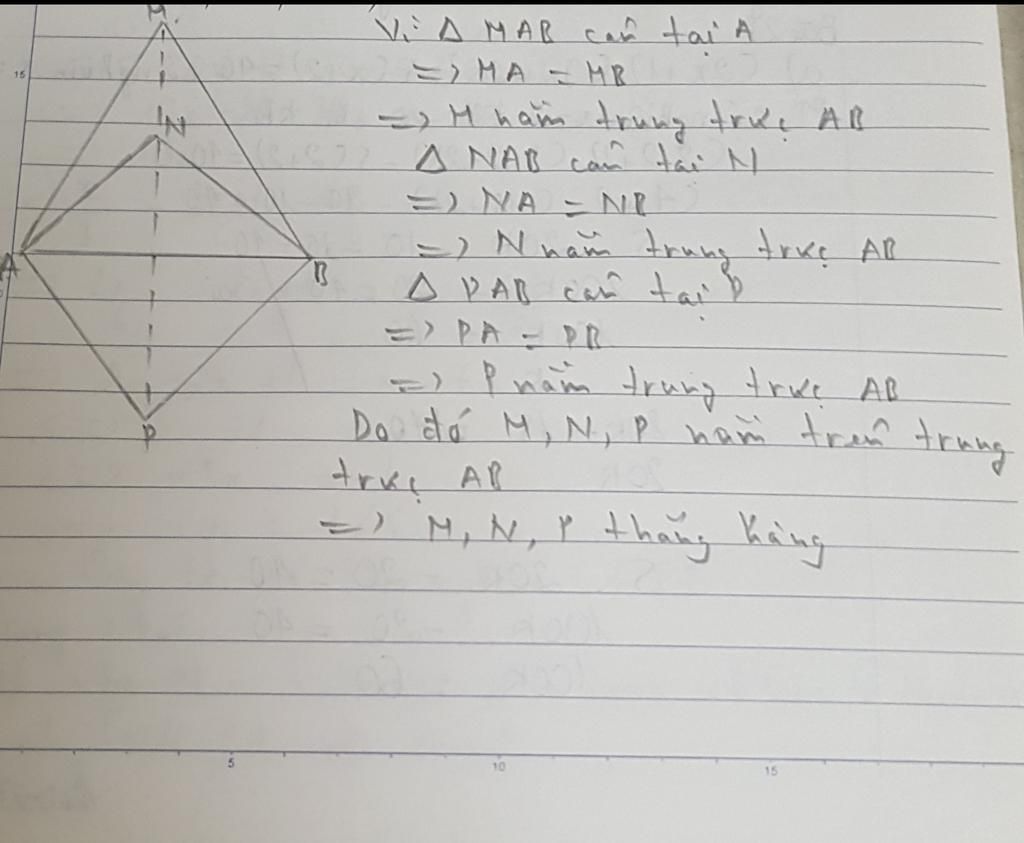 M
N
A
B
P
Vì Δ MAB cân tại A
=> MA = MB
=> M nằm trung trực AB
Δ NAB cân tại N
=> NA = NB
=> N nằm trung trực AB
Δ PAB cân tại P
=> PA = PB
=> P nằm trung trực AB
Do đó M, N, P nằm trên trung
trực AB
=> M, N, P thẳng hàng
15
5
10
15